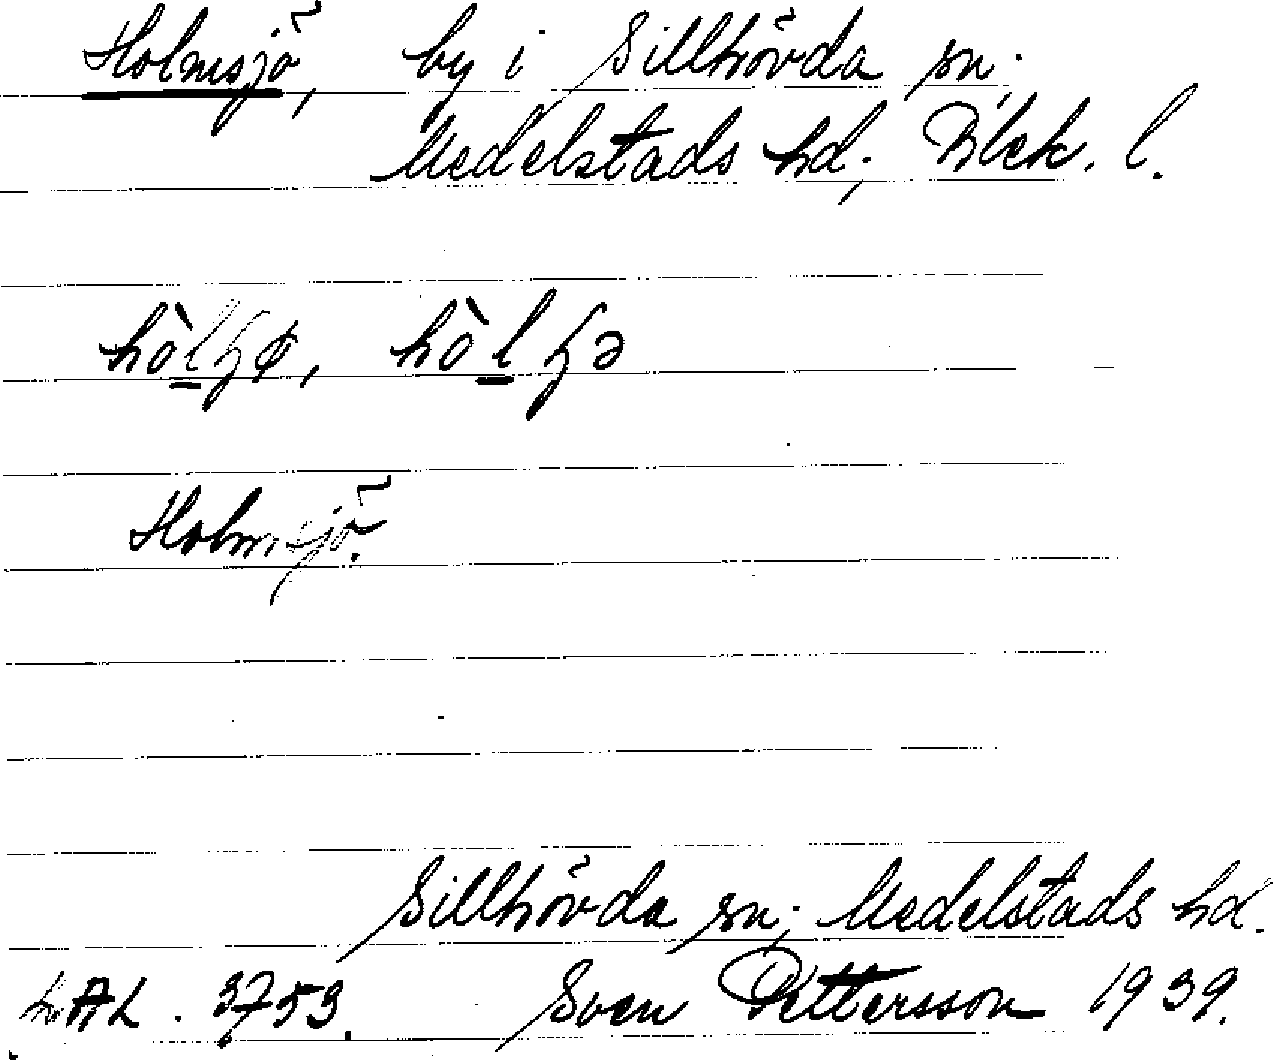 Holmsjö, by i Sillhövda sn.
Medelstads hd; Blek. l.
Holmsjö.
Sillhövda sn; Medelstads hd.
LAL. 3753. Sven Pettersson 1939.